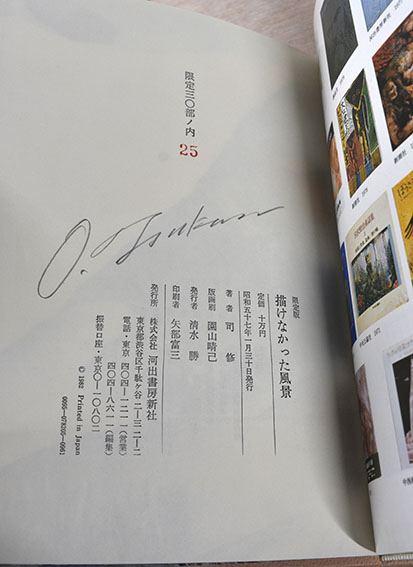 限定三〇部ノ内
25
O. Tsukasa
限定版
描けなかった風景
定価 十万円
昭和五十七年一月三十日発行
著者 司 修
版画刷 園山晴己
発行者 清水 勝
印刷者 矢部富三
発行所 株式会社 河出書房新社
東京都渋谷区千駄ヶ谷二―三二―二
電話・東京 四〇四―一二一一(営業)
四〇四―八六一一(編集)
振替口座・東京〇―一〇八〇二
© 1982 Printed in Japan